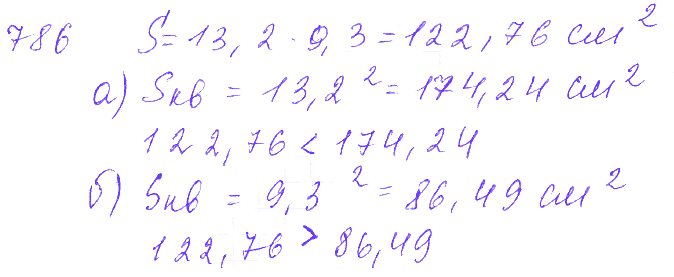 786 S = 13,2 · 9,3 = 122,76 см²
а) Sкв = 13,2² = 174,24 см²
122,76 < 174,24
б) Sкв = 9,3² = 86,49 см²
122,76 > 86,49